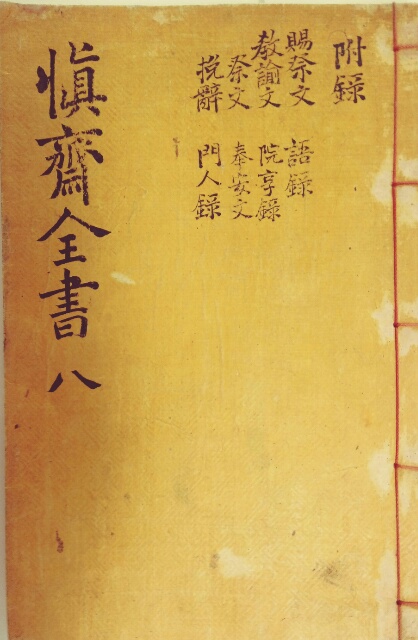 附錄
賜祭文 語錄
教諭文 院享錄
祭文 奉安文
挽辭 門人錄
愼齋全書 八